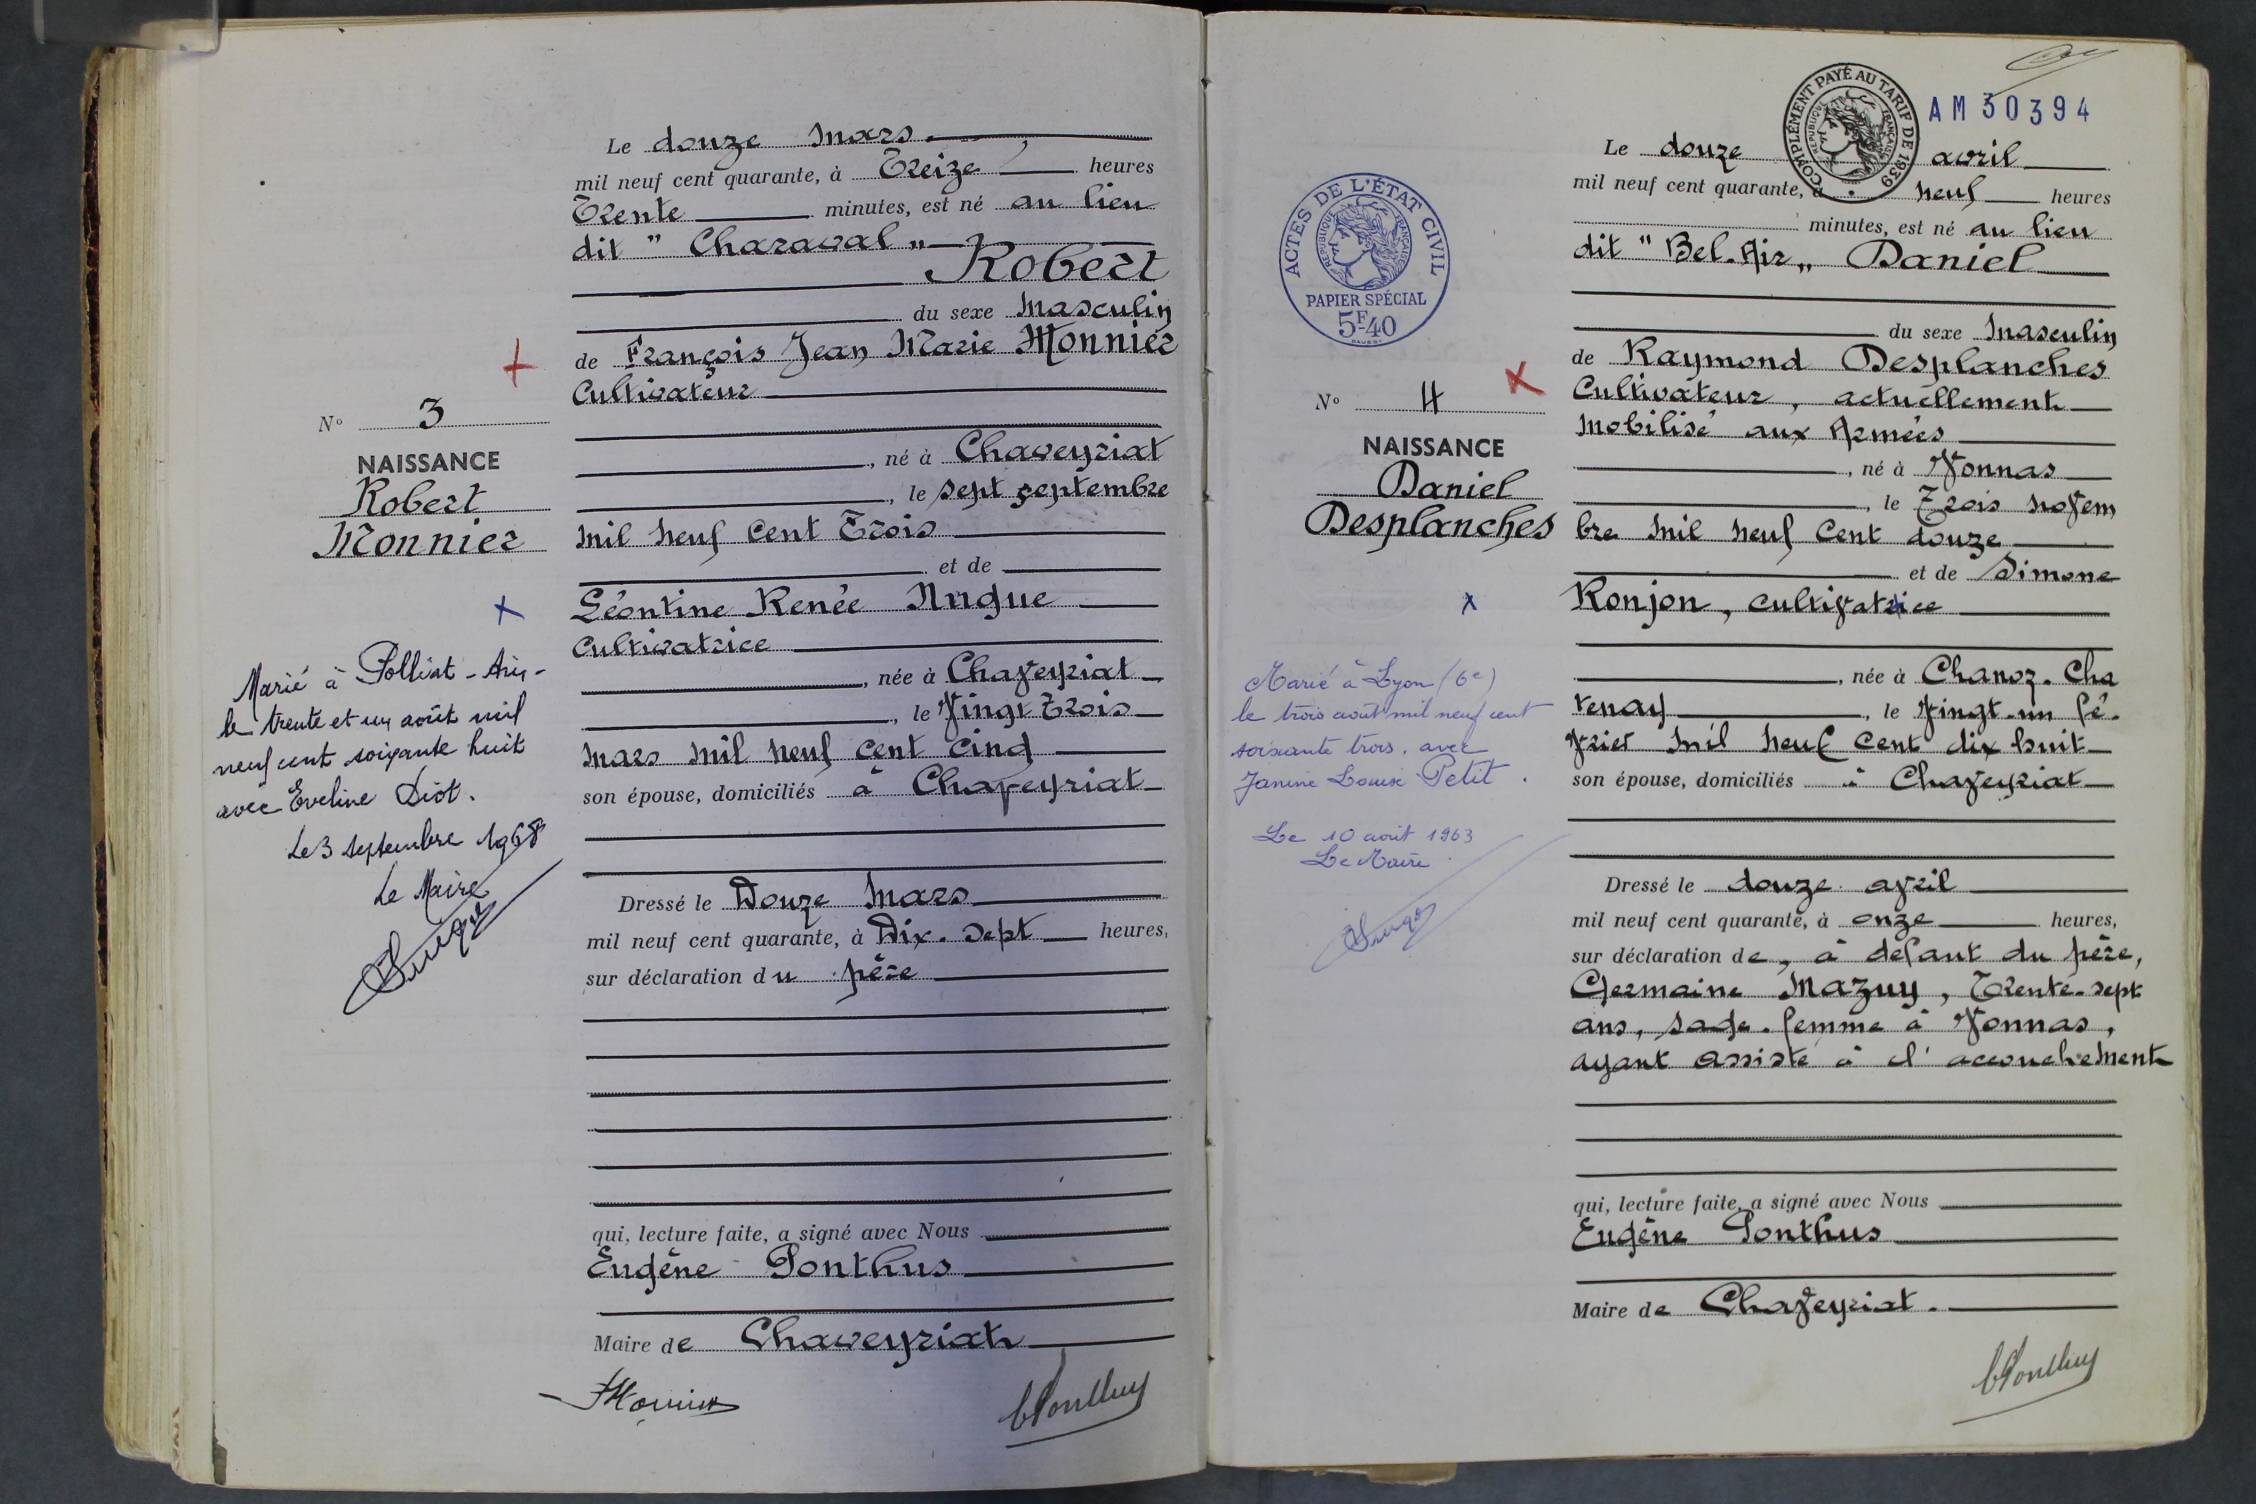 Le douze mars
mil neuf cent quarante, à Treize heures
Trente minutes, est né au lieu
dit " Charaval "
Robert
du sexe masculin
de François Jean Marie Monnier
Cultivateur
, né à Chaveyriat
, le sept septembre
mil neuf cent Trois
et de
Léontine Renée Nugue
Cultivatrice
, née à Chaveyriat
, le Vingt Trois
mars mil neuf cent cinq
son épouse, domiciliés à Chaveyriat
Dressé le Douze mars
mil neuf cent quarante, à Dix-sept heures,
sur déclaration du père
qui, lecture faite, a signé avec Nous
Eugène Ponthus
Maire de Chaveyriat
FMonnier
EPonthus
No 3
NAISSANCE
Robert
Monnier
Marié à Polliat - Ain -
le trente et un août mil
neuf cent soixante huit
avec Eveline Diot.
Le 3 septembre 1968
Le Maire
COMPLÉMENT PAYÉ AU TARIF DE 1939
RÉPUBLIQUE FRANÇAISE
AM 30394
Le douze avril
mil neuf cent quarante, à neuf heures
minutes, est né au lieu
dit " Bel-Air " Daniel
du sexe masculin
de Raymond Desplanches
Cultivateur, actuellement
mobilisé aux Armées
, né à Vonnas
, le Trois novem
bre mil neuf cent douze
et de Simone
Ronjon, cultivatrice
, née à Chanoz-Cha
tenay, le Vingt-un fé-
vrier mil neuf cent dix huit
son épouse, domiciliés à Chaveyriat
Dressé le douze avril
mil neuf cent quarante, à onze heures,
sur déclaration de, à défaut du père,
Germaine Mazuy, Trente-sept
ans, sage-femme à Vonnas,
ayant assisté à l'accouchement
qui, lecture faite, a signé avec Nous
Eugène Ponthus
Maire de Chaveyriat.
EPonthus
ACTES DE L'ÉTAT CIVIL
RÉPUBLIQUE FRANÇAISE
PAPIER SPÉCIAL
5F40
No 4
NAISSANCE
Daniel
Desplanches
Marié à Lyon (6e)
le trois août mil neuf cent
soixante trois, avec
Janine Louise Petit.
Le 10 août 1963
Le Maire